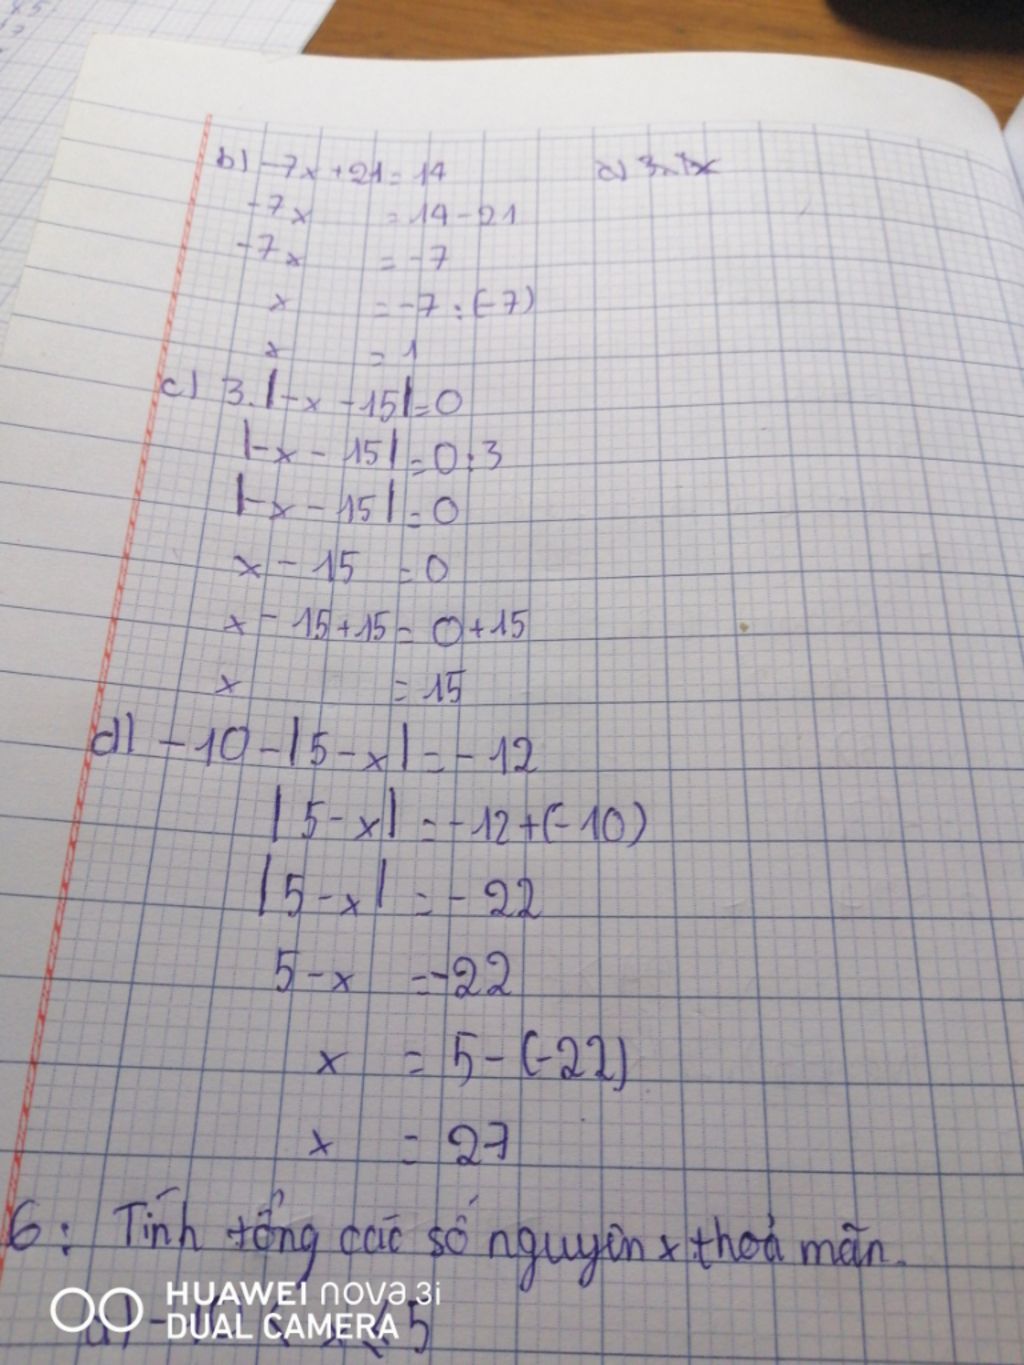 b) -7x + 21 = 14
-7x = 14 - 21
-7x = -7
x = -7 : (-7)
x = 1
c) 3.|-x - 15| = 0
|-x - 15| = 0 : 3
|-x - 15| = 0
x - 15 = 0
x - 15 + 15 = 0 + 15
x = 15
d) -10 - |5 - x| = -12
|5 - x| = -12 + (-10)
|5 - x| = -22
5 - x = -22
x = 5 - (-22)
x = 27
6: Tính tổng các số nguyên x thoả mãn.
HUAWEI nova 3i
DUAL CAMERA